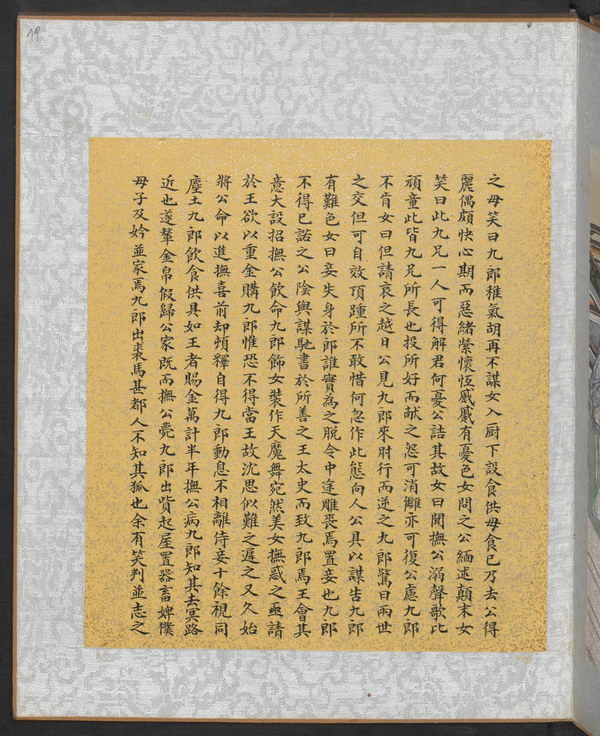 19
之母笑曰九郎稚氣胡再不謀女入厨下設食供母食已乃去公得
麗偶頗快心期而惡緒縈懷恆戚戚有憂色女問之公緬述顛末女
笑曰此九兄一人可得解君何憂公詰其故女曰聞撫公溺聲歌比
頑童此皆九兄所長也投所好而献之怨可消讎亦可復公慮九郎
不肯女曰但請哀之越日公見九郎來肘行而逆之九郎驚曰兩世
之交但可自效頂踵所不敢惜何忽作此態向人公具以謀告九郎
有難色女曰妾失身於郎誰實為之脱令中途雕喪焉置妾也九郎
不得已諾之公陰與謀馳書於所善之王太史而致九郎焉王會其
意大設招撫公飲命九郎飾女裝作天魔舞宛然美女撫惑之亟請
於王欲以重金購九郎惟恐不得當王故沈思似難之遲之又久始
將公命以進撫喜前却頓釋自得九郎動息不相離侍妾十餘視同
塵土九郎飲食供具如王者賜金萬計半年撫公病九郎知其去冥路
近也遂輦金帛假歸公家既而撫公薨九郎出貲起屋置器畜婢僕
母子及妗並家焉九郎出裘馬甚都人不知其狐也余有笑判並志之